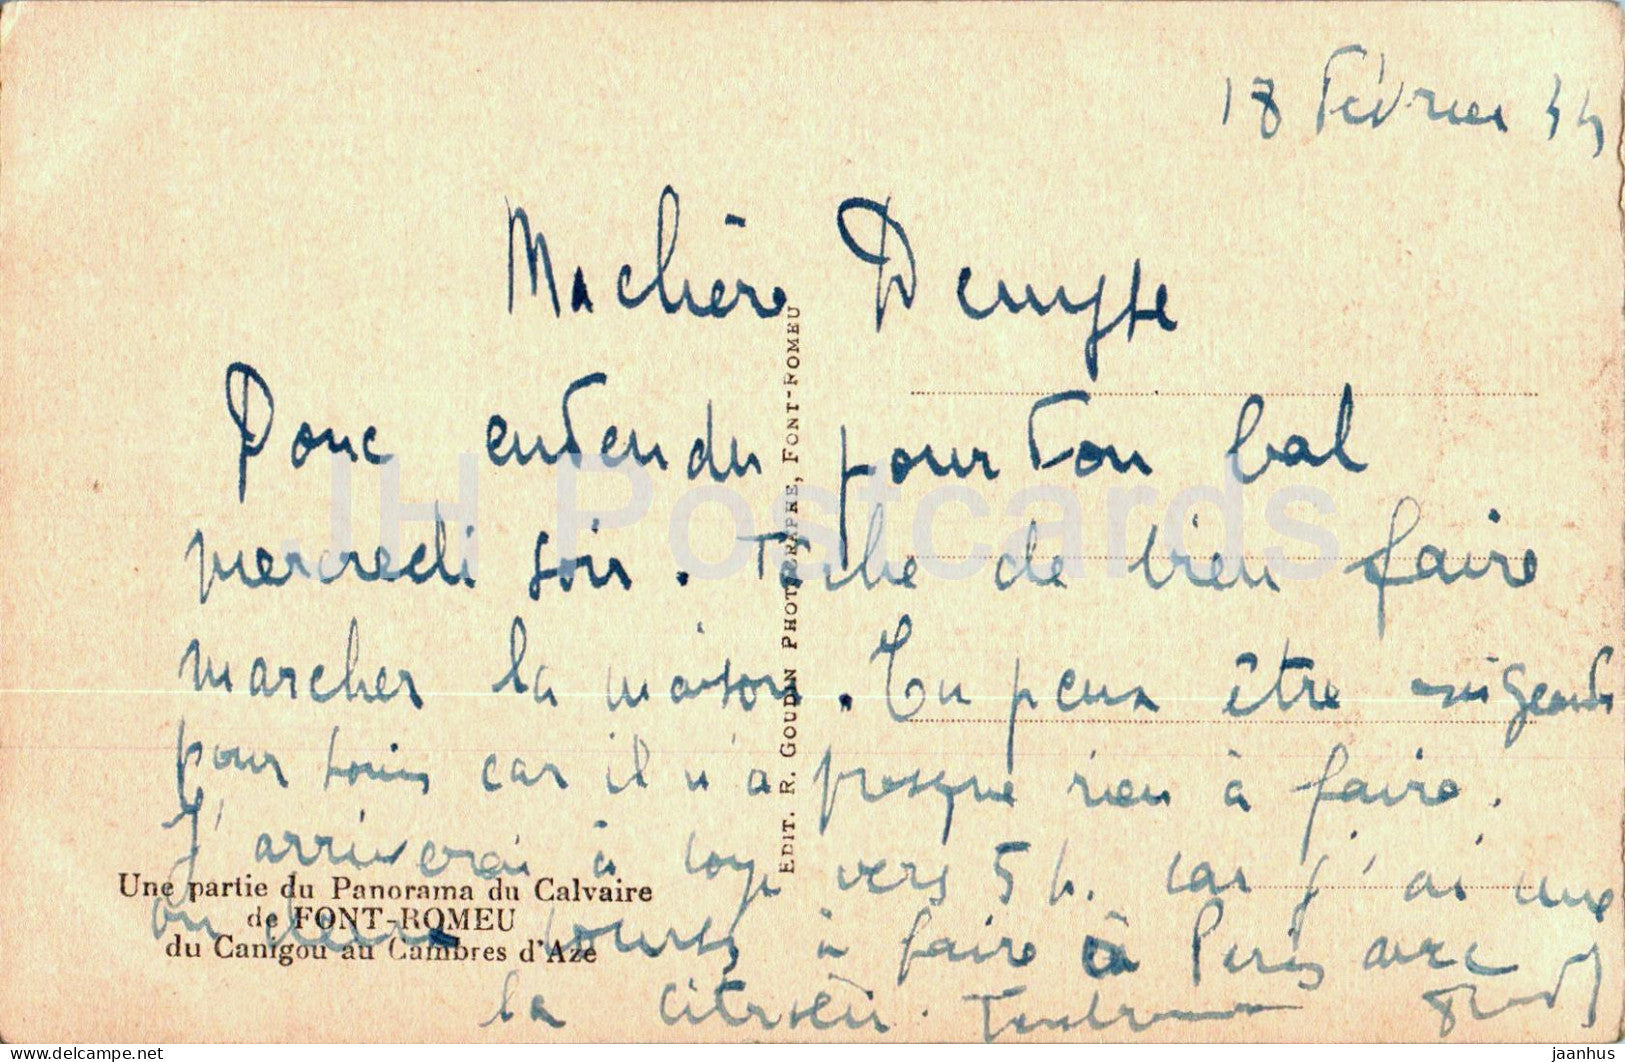 18 Février 44
Ma chère Denyse
Donc entendu pour ton bal
mercredi soir. Tâche de bien faire
marcher la maison. Tu peux être exigeante
pour car il n'a presque rien à faire.
J'arriverai à vers 5 h. car j'ai une
ou deux courses à faire à Paris avec
la citroën. Tendrement
Une partie du Panorama du Calvaire
de FONT-ROMEU
du Canigou au Cambres d'Aze
EDIT. R. GOUDIN PHOTOGRAPHE, FONT-ROMEU
JH Postcards
© delcampe.net
jaanhus